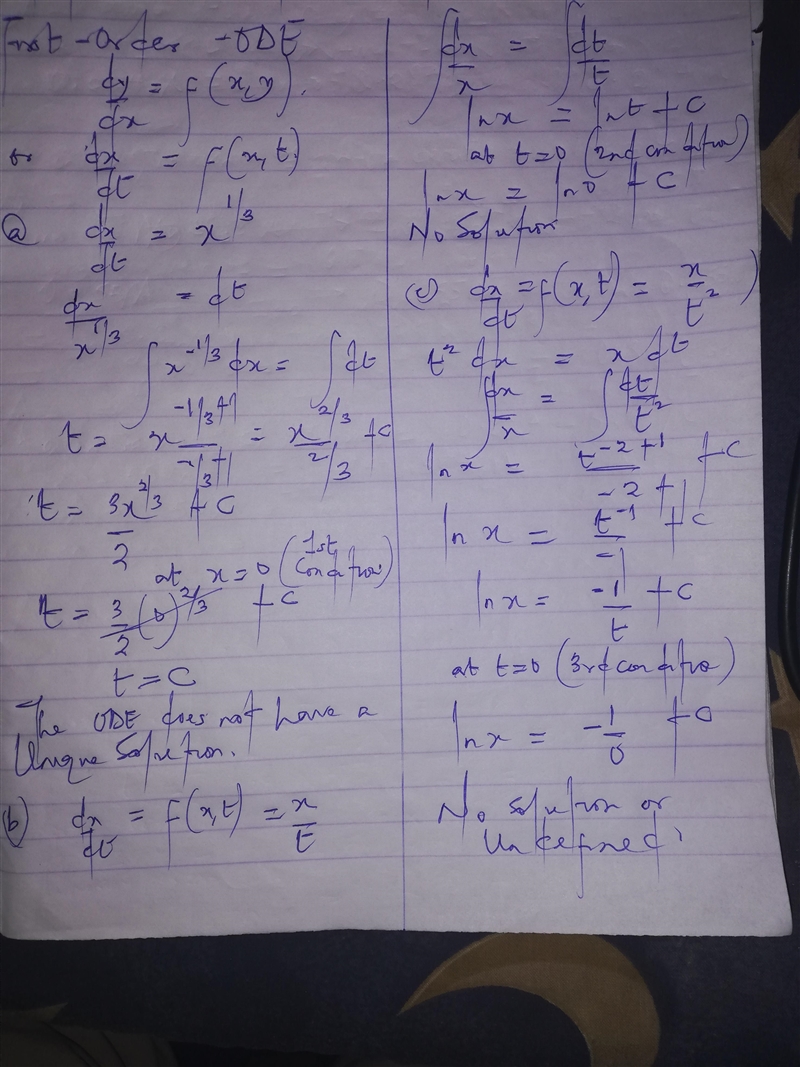 First-Order-ODE
dy/dx = f(x,y).
or dx/dt = f(x,t)
(a) dx/dt = x^{1/3}
dx/x^{1/3} = dt
∫x^{-1/3} dx = ∫dt
t = x^{-1/3+1}/(-1/3+1) = x^{2/3}/(2/3) + C
t = 3x^{2/3}/2 + C
at x=0 (1st Condition)
t = 3/2 (0)^{2/3} + C
t = C
The ODE does not have a
Unique Solution.
(b) dx/dt = f(x,t) = x/t
∫dx/x = ∫dt/t
ln x = ln t + C
at t=0 (2nd condition)
ln x = ln 0 + C
No Solution
(c) dx/dt = f(x,t) = x/t^2)
t^2 dx = x dt
∫dx/x = ∫dt/t^2
ln x = t^{-2+1}/(-2+1) + C
ln x = t^{-1}/-1 + C
ln x = -1/t + C
at t=0 (3rd condition)
ln x = -1/0 + C
No solution or
Undefined.